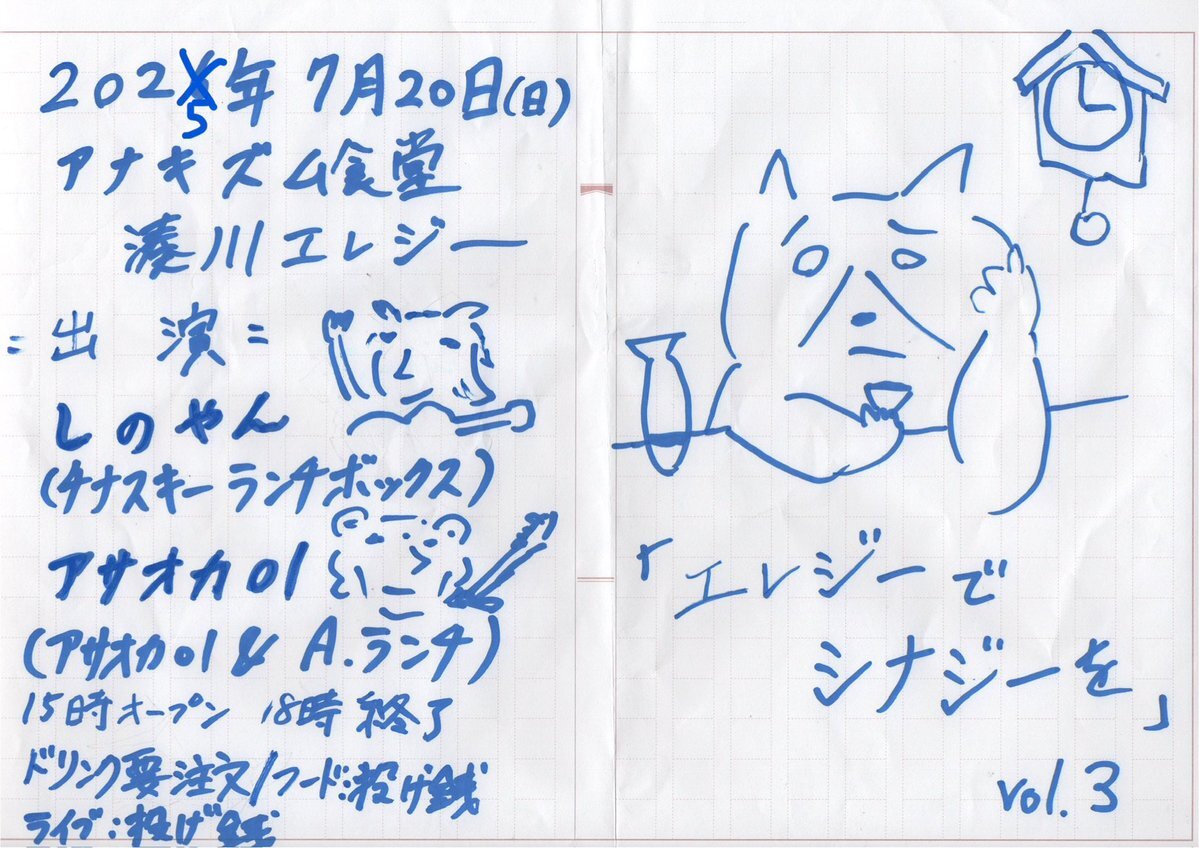 2025年 7月20日(日)
アナキズム食堂
湊川エレジー
=出 演=
しのやん
(チナスキーランチボックス)
アサオカ01
(アサオカ01 & A.ランチ)
15時オープン 18時終了
ドリンク要注文/フード:投げ銭
ライブ:投げ銭
「エレジーで
シナジーを」
vol.3